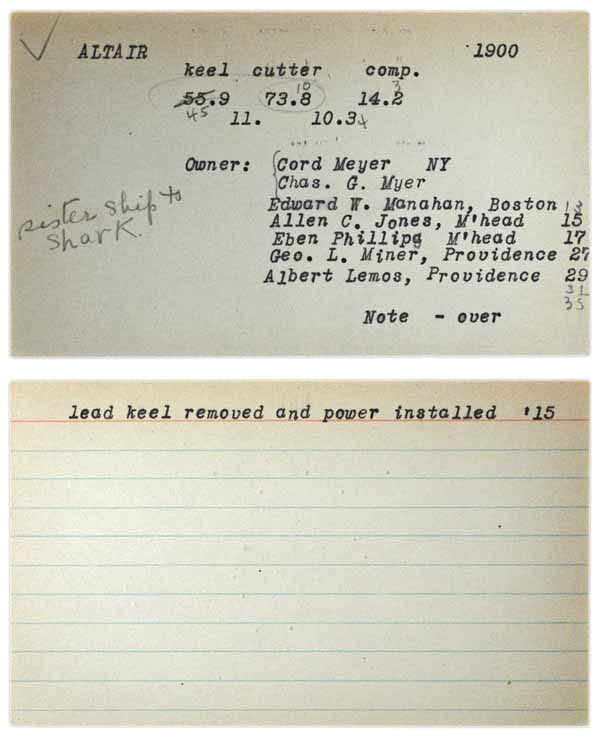 ALTAIR 1900
keel cutter comp.
55.9 73.8 14.2
45 10 3
11. 10.3 4
Owner: Cord Meyer NY
Chas. G. Myer
Edward W. Manahan, Boston 13
sister ship to
Shark.
Allen C. Jones, M'head 15
Eben Phillips M'head 17
Geo. L. Miner, Providence 27
Albert Lemos, Providence 29
31
35
Note - over
lead keel removed and power installed '15